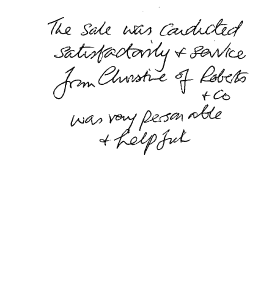 The sale was conducted
satisfactorily + service
from Christine of Roberts
+ Co
was very personable
+ helpful